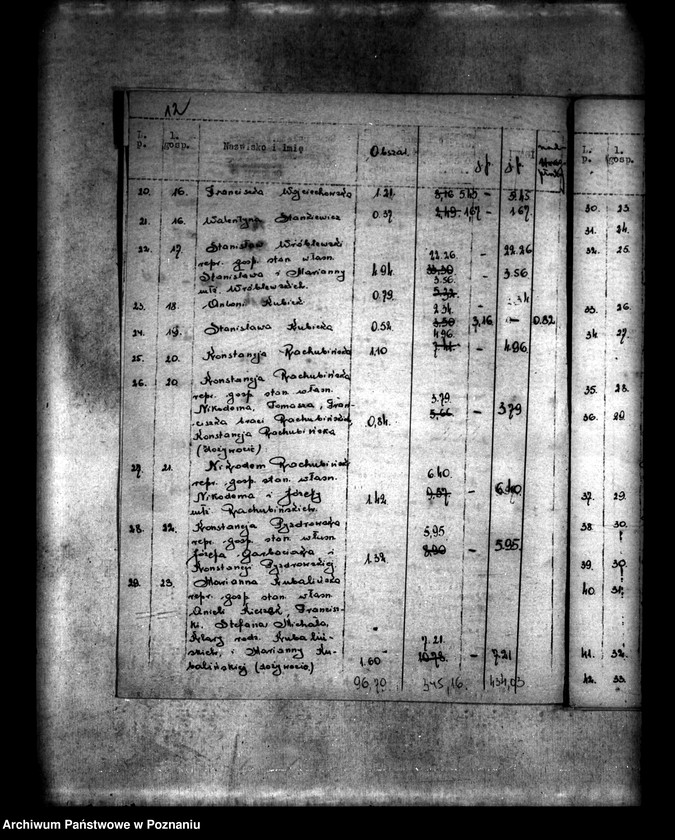 12
L. p. l. gosp. Nazwisko i imię Obszar
20. 16. Franciszka Wojciechowska 1.21. 5.45 - 5.45
21. 16. Walentyna Staniewicz 0.37 2.49. 1.67 - 1.67
22. 17 Stanisław Wróblewski 22.26 - 22.26
repr. gosp. stan. własn.
Stanisława i Marianny 4.94. 33.30 - 3.56
młż. Wróblewskich. 3.56.
0.79. 5.32
23. 18. Antoni Kubicz 2.34 - 2.34
24. 19. Stanisława Kubicka 0.52. 3.50 3.16 - 0.82
25. 20. Konstancja Rachubińska 1.10 4.96 7.41 - 4.96
26. 20 Konstancja Rachubińska
repr. gosp. stan. własn.
Nikodema, Tomasza, Fran- 3.79
ciszka braci Rachubińskich, 0,84. 5.66 - 3.79
Konstancja Rachubińska
(dożywocie)
27. 21. Nikodem Rachubiński
repr. gosp. stan. własn. 6.40
Nikodema i Józefy 1.42 - 6.40
młż. Rachubińskich.
28. 22. Konstancja Pyzdrowska
repr. gosp. stan. własn. 5.95
Józefa Garbaciaka i 1.32 8.90 - 5.95.
Konstancji Pyzdrowskiej
29. 23. Marianna Kubalińska
repr. gosp. stan. własn.
Anieli, Francisz-
ki, Stefana, Michała,
Klary rodz. Kubaliń- 7.21
skich, i Marianny Ku- 10.78 - 7.21
balińskiej (dożywocie) 1.60
96,79 345,16. 434,03
L. p. l. gosp.
30. 23.
31. 24.
32. 25.
33. 26.
34 27.
35. 28.
36. 29.
37. 29.
38. 30.
39. 30.
40. 31.
41. 32.
42. 33.
Archiwum Państwowe w Poznaniu